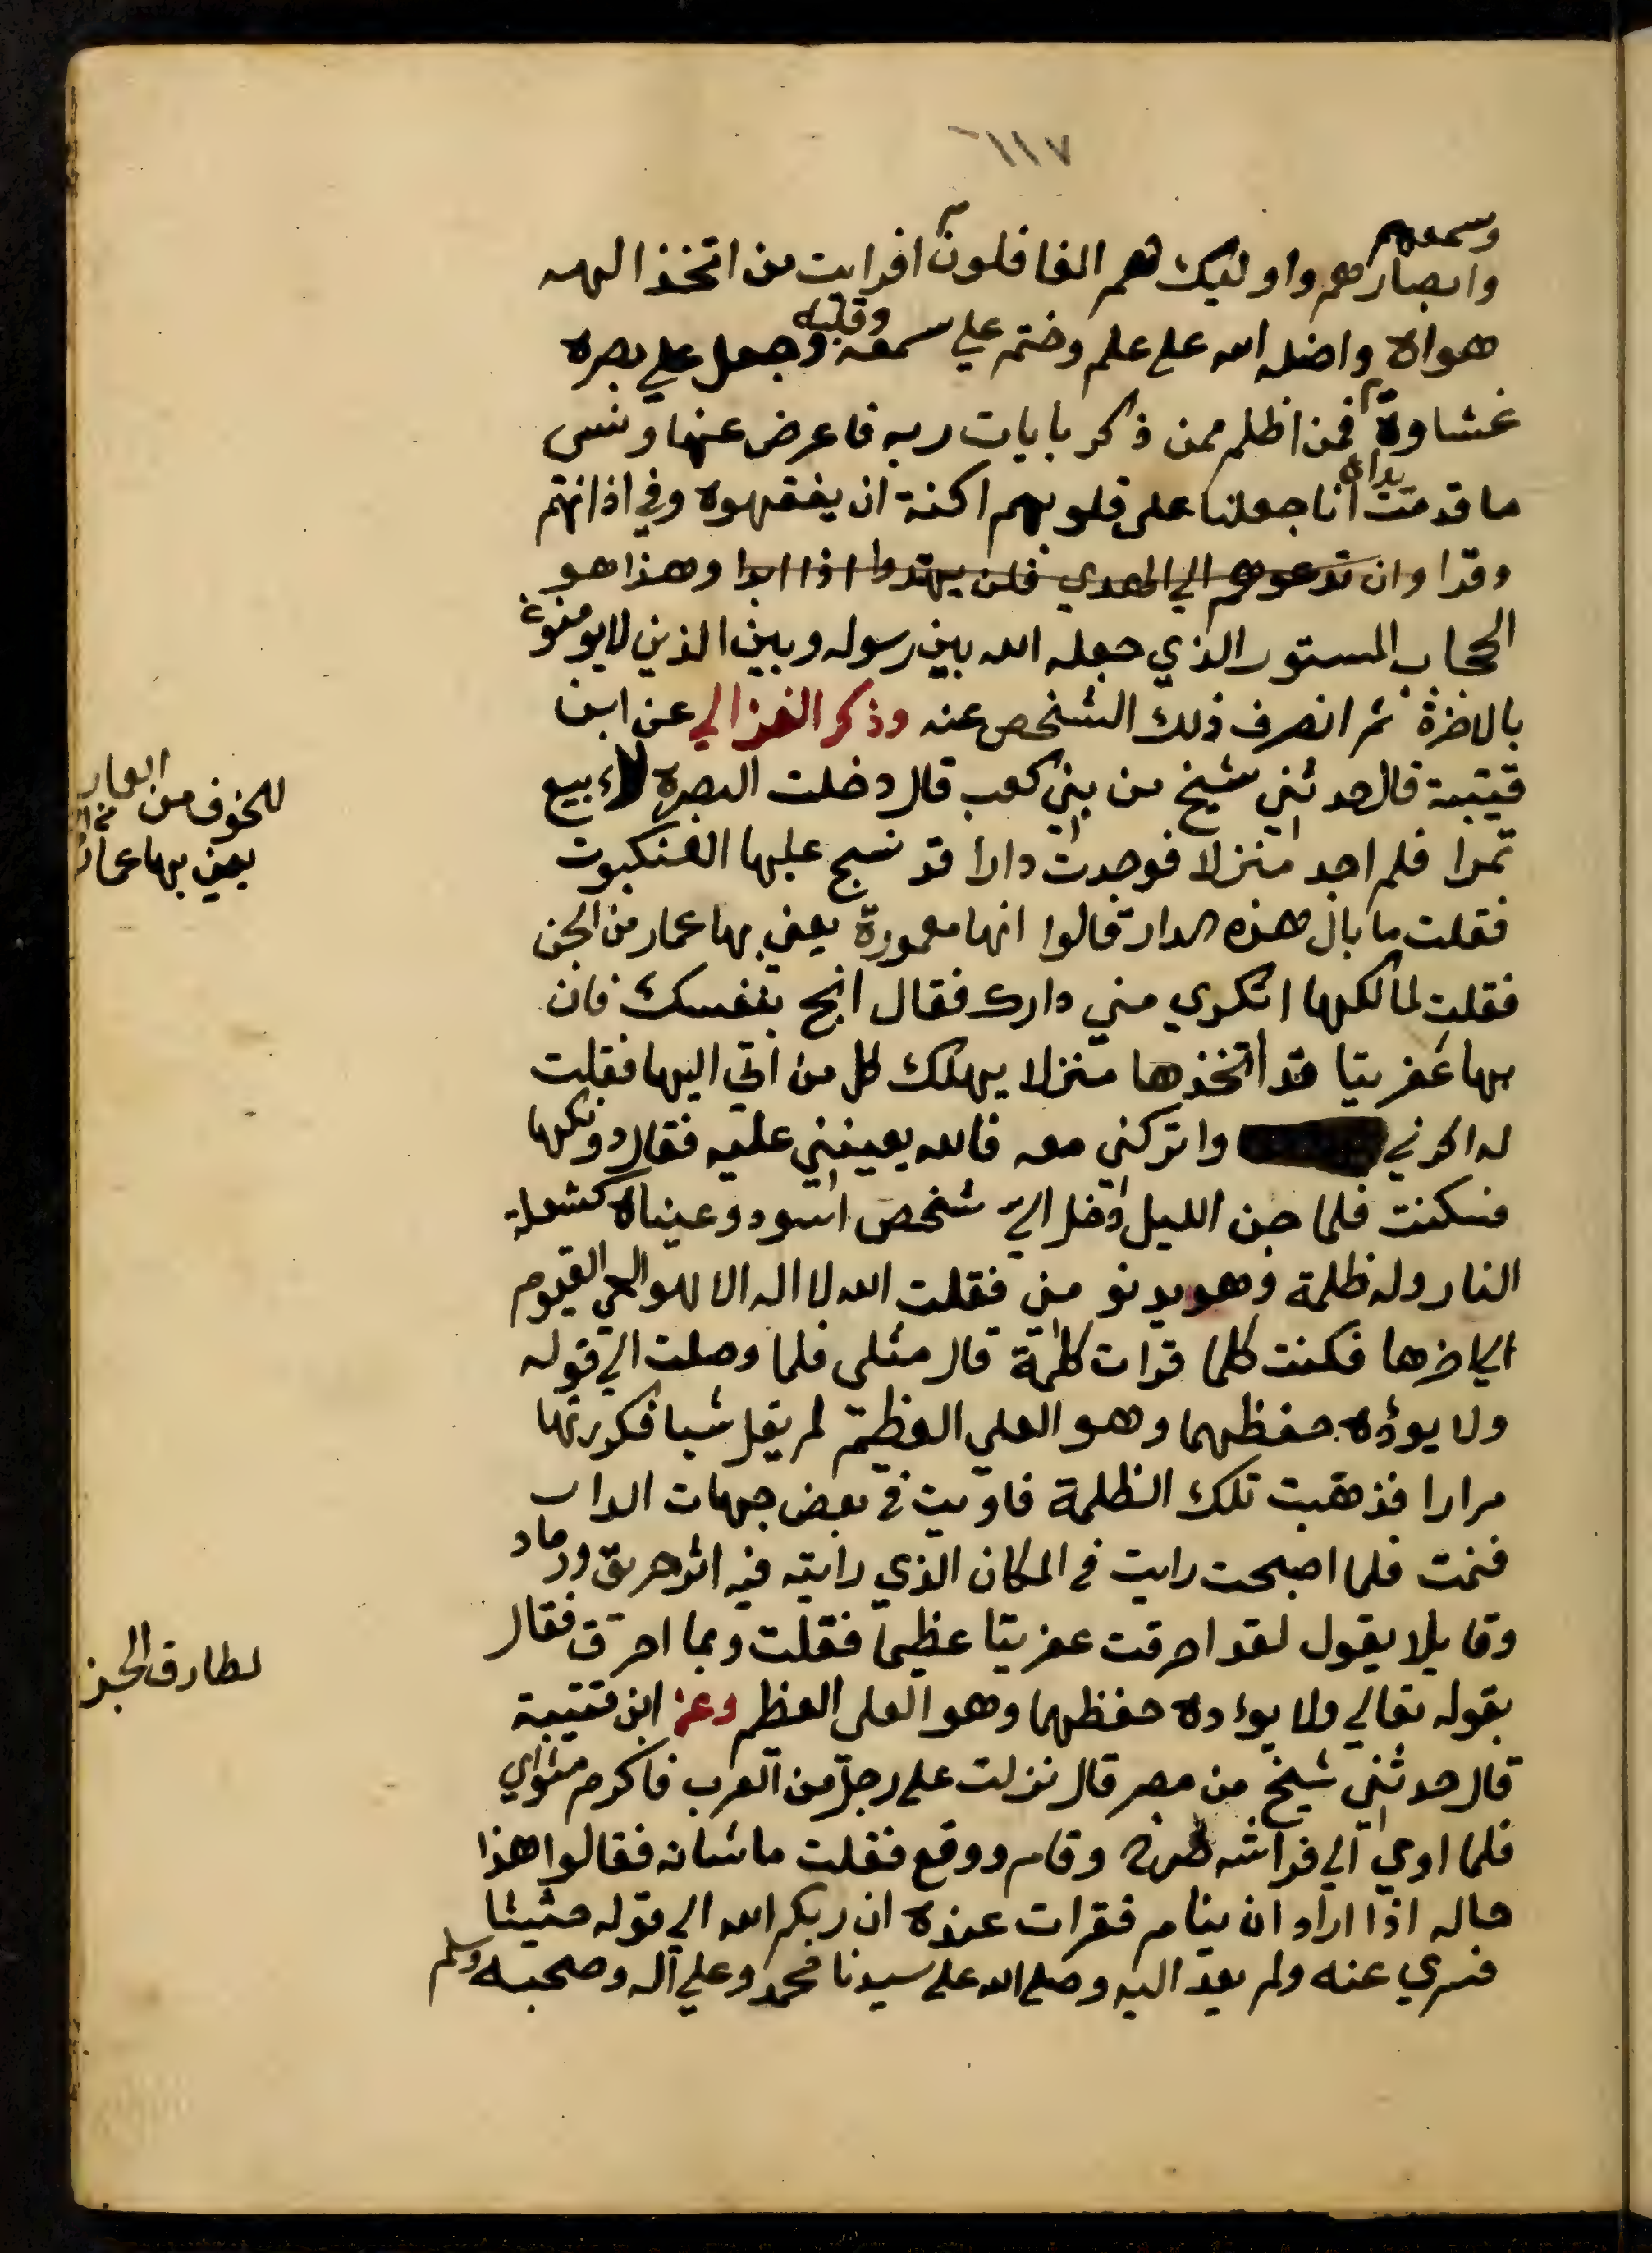 ١١٧
وسمعهم
وابصارهم واوليك هم الغافلون افرايت من اتخذ الهه
هواه واضله الله على علم وختم علي سمعه وقلبه وجعل علي بصره
غشاوة فمن اظلم ممن ذكر بايات ربه فاعرض عنها ونسى
ما قدمت يداه انا جعلنا على قلوبهم اكنة ان يفقهوه وفي اذانهم
وقرا وان تدعوهم الي الهدي فلن يهتدوا اذا ابدا وهذا هو
الحجاب المستور الذي جعله الله بين رسوله وبين الذين لا يومنون
بالاخرة ثم انصرف ذلك الشخص عنه وذكر الغزالي عن ابن
قتيبة قال حدثني شيخ من بني كعب قال دخلت البصرة لاء بيع
تمرا فلم اجد منزلا فوجدت دارا قد نسج عليها العنكبوت
فقلت ما بال هذه الدار قالوا انها معمورة يعني بها عمار من الجن
فقلت لمالكها اتكري مني دارك فقال انج بنفسك فان
بها عفريتا قد اتخذها منزلا يهلك كل من اتي اليها فقلت
له اكرني واتركني معه فالله يعينني عليه فقال دونكها
فسكنت فلما جن الليل دخل الي شخص اسود وعيناه كشعلة
النار وله ظلمة وهو يدنو مني فقلت الله لا اله الا هو الحي القيوم
الي اخرها فكنت كلما قرات كلمة قال مثلى فلما وصلت الي قوله
ولا يوؤده حفظهما وهو العلي العظيم لم يقل شيا فكررتها
مرارا فذهبت تلك الظلمة فاويت في بعض جهات الدار
فنمت فلما اصبحت رايت في المكان الذي رايته فيه اثر حريق ورماد
وقايلا يقول لقد احرقت عفريتا عظيما فقلت وبما احرق فقال
بقوله تعالي ولا يوءده حفظهما وهو العلي العظيم وعن ابن قتيبة
قال حدثني شيخ من مصر قال نزلت على رجل من العرب فاكرم مثواي
فلما اوي الي فراشه صرخ وقام ووقع فقلت ما شانه فقالوا هذا
حاله اذا اراد ان ينام فقرات عنده ان ربكم الله الي قوله حثيثا
فسري عنه ولم يعد اليه وصلى الله على سيدنا محمد وعلي اله وصحبه وسلم
للخوف من العمار
يعني بها عمار
لطارق الجن